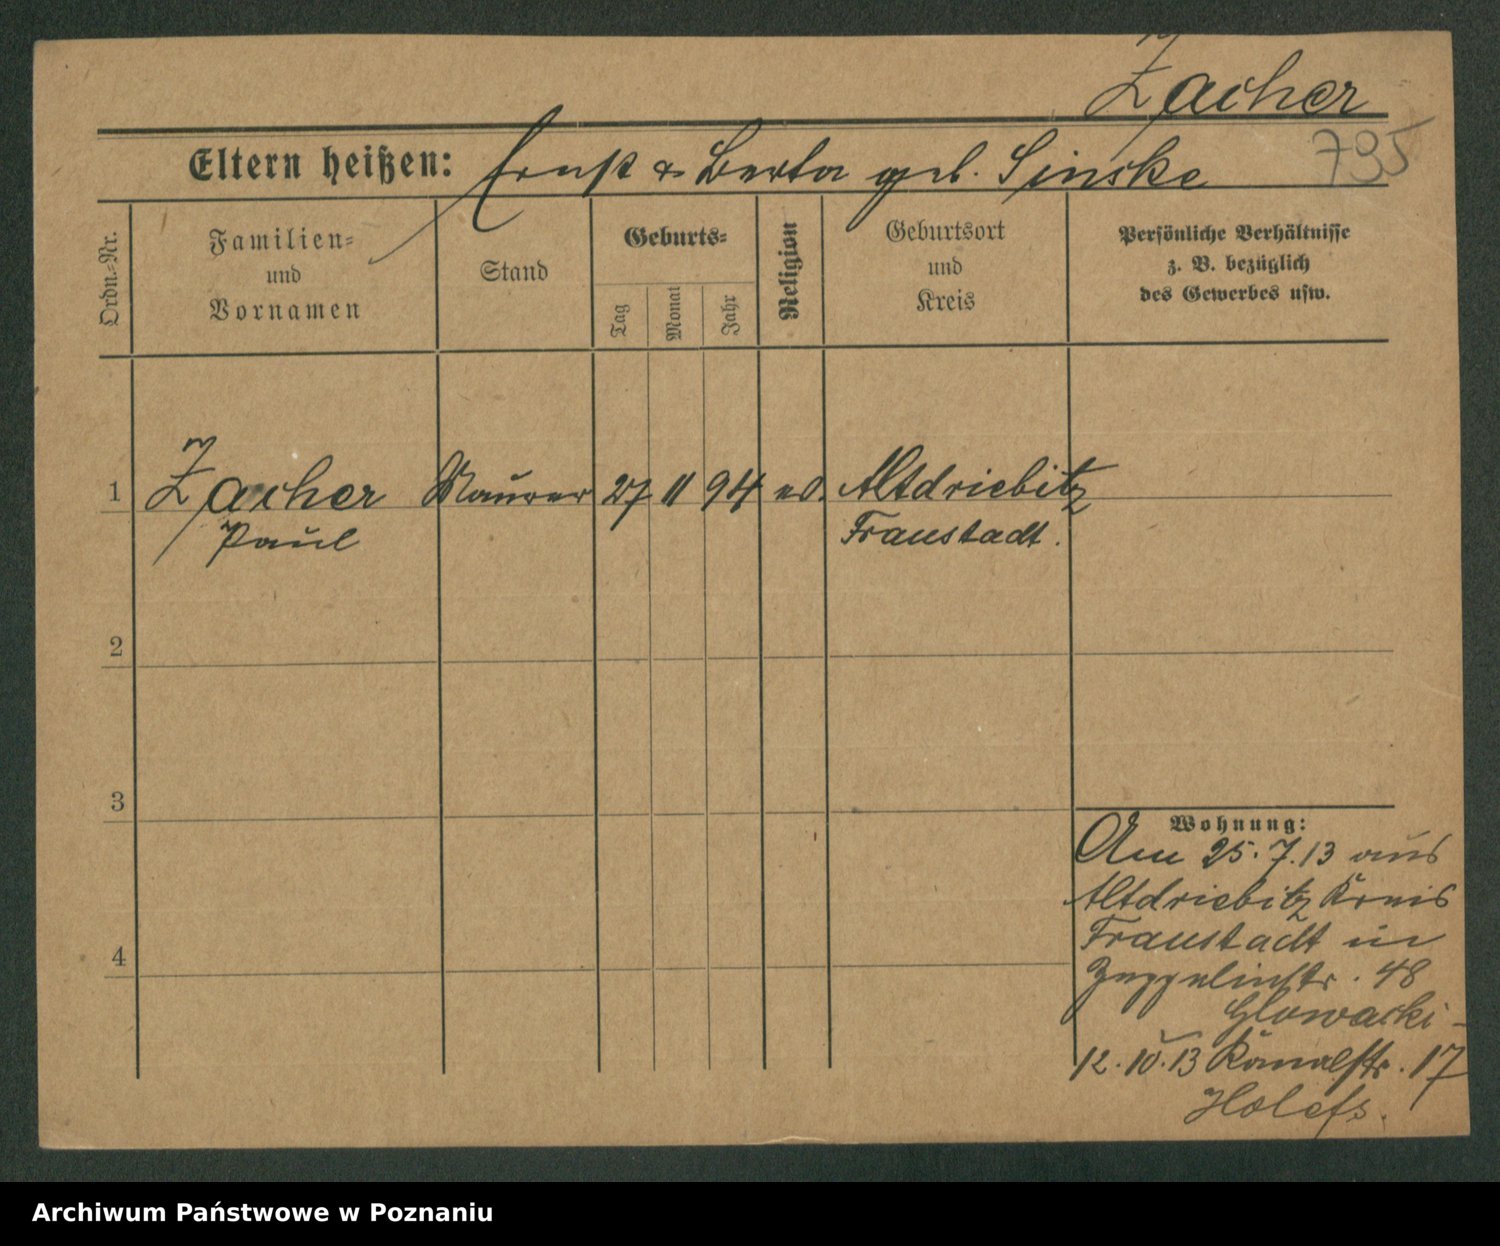 Zacher
795
Eltern heißen: Ernst & Berta geb. Sinske
Ordn.-Nr.
Familien-
und
Vornamen
Stand
Geburts-
Tag
Monat
Jahr
Religion
Geburtsort
und
Kreis
Persönliche Verhältnisse
z. B. bezüglich
des Gewerbes usw.
1 Zacher Maurer 27 11 94 ev. Altdriebitz
Paul Fraustadt.
2
3
4
Wohnung:
Am 25.7.13 aus
Altdriebitz Kreis
Fraustadt in
Zeppelinstr. 48
Glowacki -
12.10.13 Kanalstr. 17
Archiwum Państwowe w Poznaniu